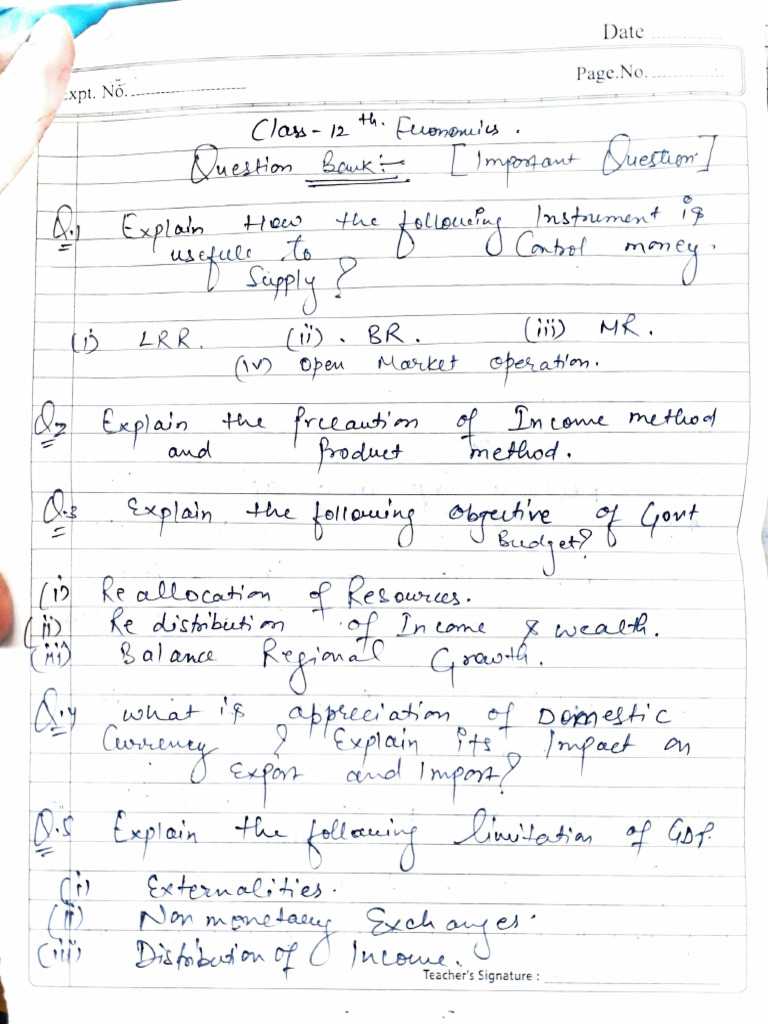 Date
Expt. No.
Page.No.
Class-12 th. Economics.
Question Bank:- [Important Question]
Q.1 Explain How the following Instrument is
usefull to Control money.
Supply?
(i) LRR. (ii). BR. (iii) MR.
(iv) Open Market operation.
Q2 Explain the precaution of Income method
and Product method.
Q.3 Explain the following objective of Govt
Budget?
(i) Re allocation of Resources.
(ii) Re distribution of Income & wealth.
(iii) Balance Regional Growth.
Q.4 What is appreciation of Domestic
Currency ? Explain its Impact on
Export and Import?
Q.5 Explain the following limitation of GDP.
(i) Externalities.
(ii) Non monetary Exchanges.
(iii) Distribution of Income.
Teacher's Signature :